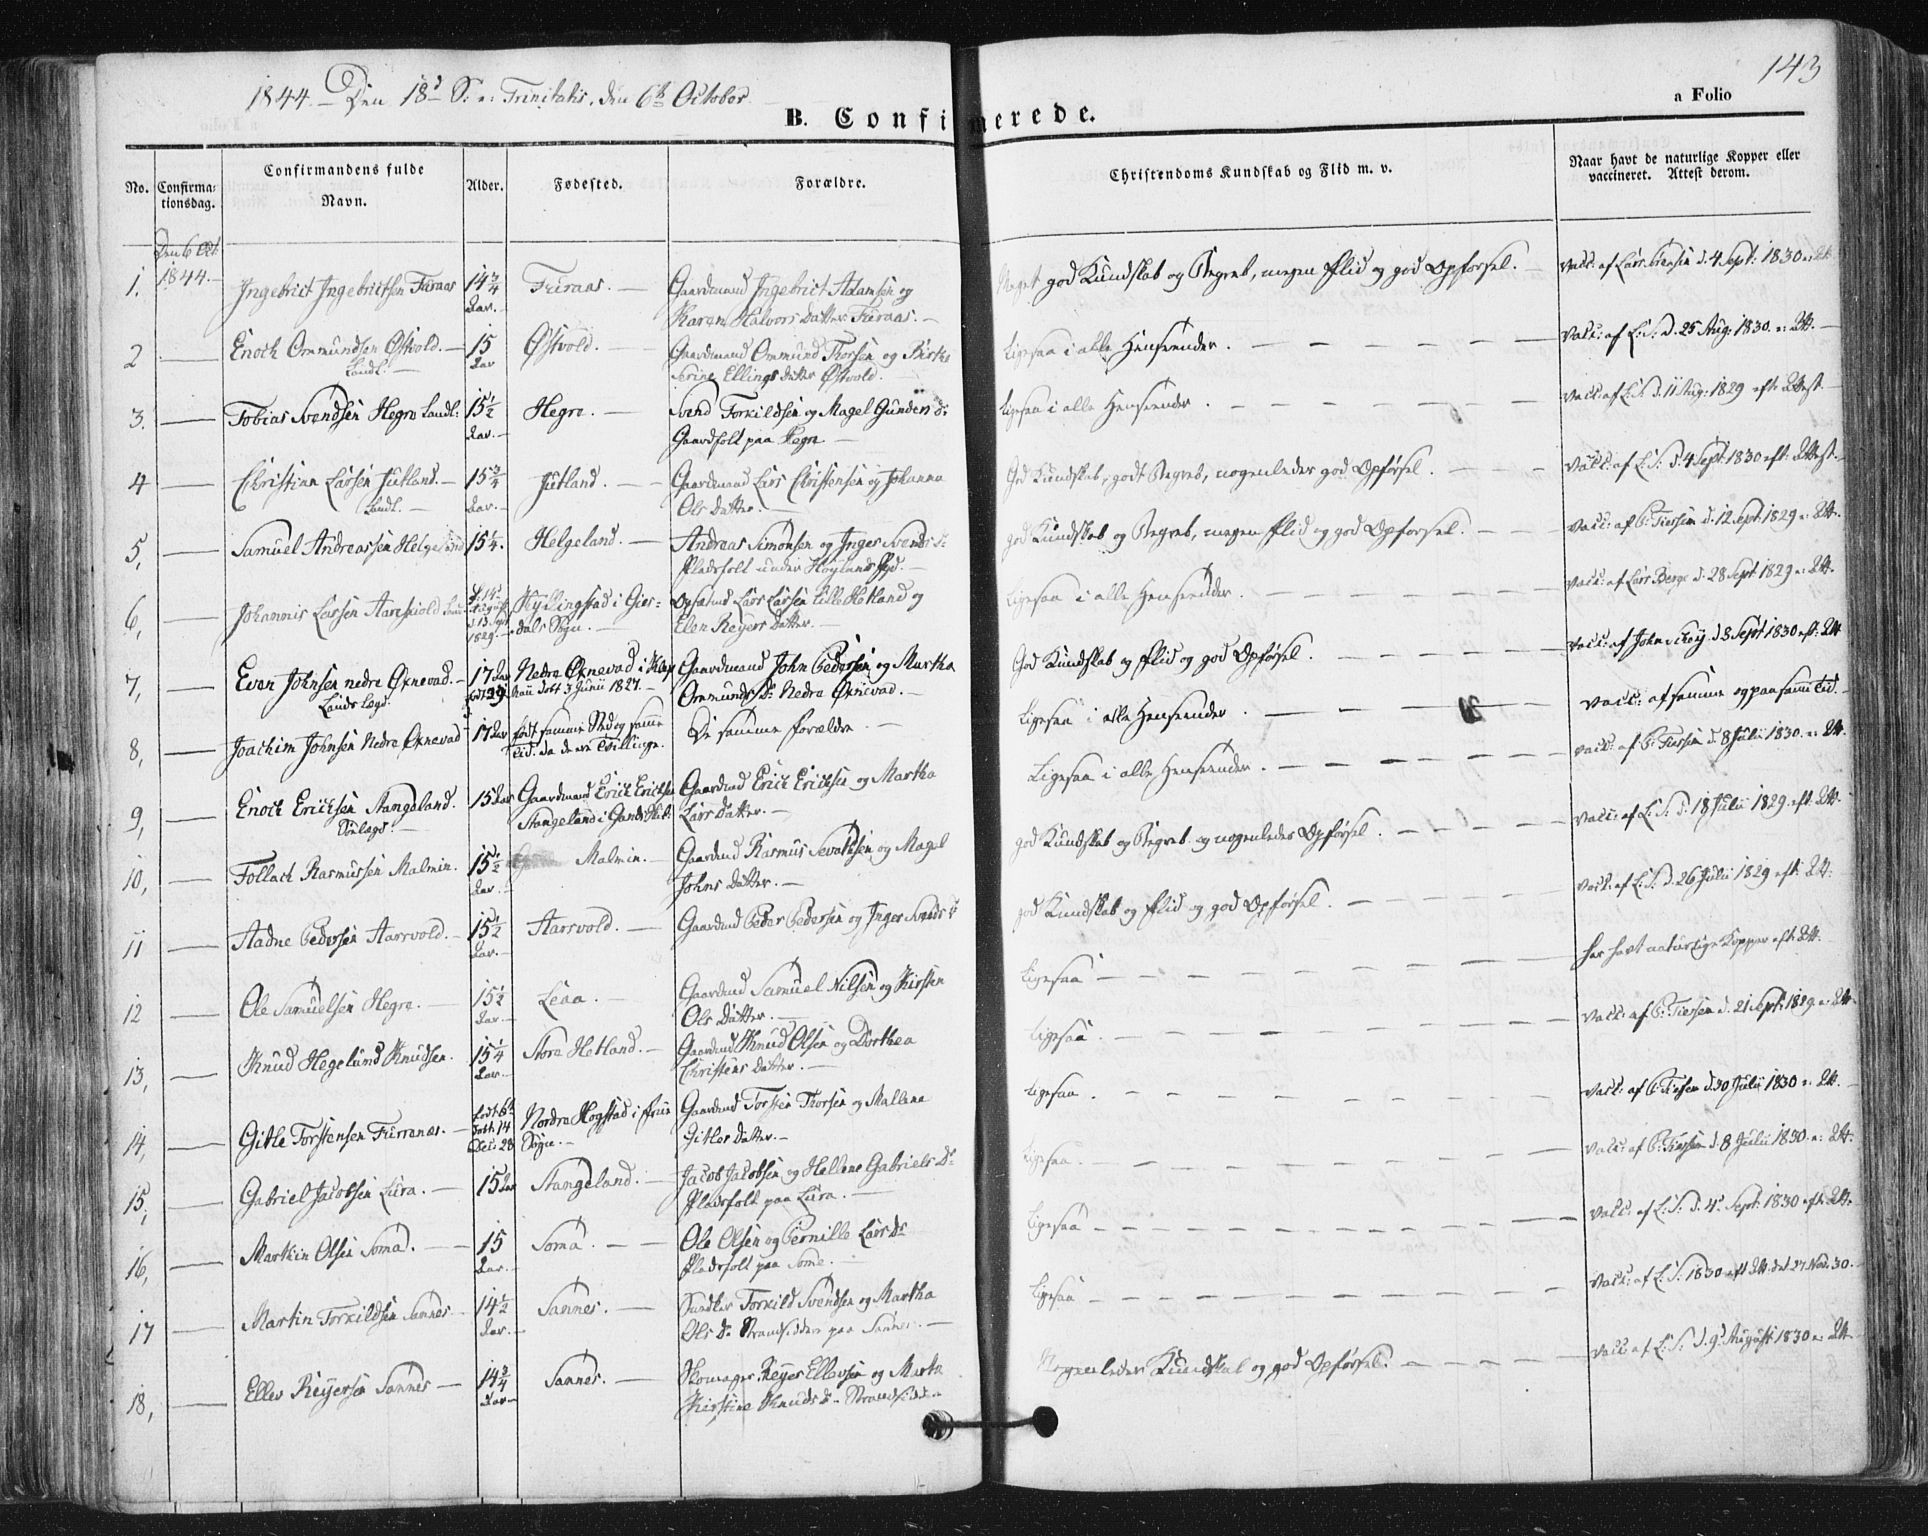 1844 – Den 18d S. e: Trinitatis, den 6te October
143
a Folio
B. Confirmerede.
No.
Confirma-
tionsdag.
Confirmandens fulde
Navn.
Alder.
Fødested.
Forældre.
Christendoms Kundskab og Flid m. v.
Naar havt de naturlige Kopper eller
vaccineret. Attest derom.
Den 6 Oct.
1. 1844. Ingebrict Ingebrictsen Furaas 14 3/4 Furaas. Gaardmand Ingebrict Adamsen og Meget god Kundskab og Begreb, megen Flid og god Opførsel. Vacc: af Lars Iversen d. 4 Sept: 1830
Aar. Karen Halvors Datter Furaas.
2 Enoch Ommundsen Østvold. 15 Østvold. Gaardmand Ommund Thorsen og Birthe Ligesaa i alle Henseender. Vacc: af L: S: d. 25 Aug: 1830. e: Att.
Landl. Aar Serine Ellings Datter Østvold.
3. Tobias Svendsen Hegre Landl: 15 1/2 Hegre. Svend Torkildsen og Magel Gunders d: Ligesaa i alle Henseender. Vacc: af L: S: d. 11 Aug: 1829 eft: Attest.
Aar. Gaardfolk paa Hegre
4 Christian Larsen Jutland. 15 3/4 Jutland. Gaardmand Lars Christensen og Johanna God Kundskab, godt Begreb, nogenledes god Opførsel. Vacc: af L: S: d. 4 Sept: 1830 eft: Attest.
Landl. Aar. Ols Datter.
5, Samuel Andreassen Helgeland 15 1/4. Helgeland. Andreas Simonsen og Inger Svends d: god Kundskab og Begreb, megen Flid og god Opførsel. Vacc: af P: Tiersen d. 12 Sept: 1829 e: Att.
Pladsfolk under Høyland
6, Johannis Larsen Kyllingstad i Gies- Opsatmd Lars Larsen Lille Hetland og Ligesaa i alle Henseender. Vacc: af Lars Berge d. 28 Sept 1829 e: Att.
1829. dals Sogn. Elen Reyers Datter.
7, Even Johnsen nedre Øxnevad. 17 Aar Nedre Øxnevad i Klep Gaardmand John Pedersen og Martha God Kundskab og Flid og god Opførsel. Vacc: af John d. 8 Sept 1830 eft: Att
Landslægd. 3 Junii 1827. Ommunds d: Nedre Øxnevad.
8, Joachim Johnsen Nedre Øxnevad 17 Aar født samme Sted og samme De samme forældre Ligesaa i alle Henseender. Vacc: af samme og paa samme Tid.
Tid. da de ere Tvillinge.
9, Enoch Ericksen Stangeland. 15 Aar Gaardmand Erick Ericksen Gaardmd Erick Ericksen og Martha Ligesaa i alle Henseender. Vacc: af P: Tiersen d. 8 Julii 1830. e: Att.
Stangeland i Lars Datter.
10, Tollach Rasmussen Malmin. 15 1/2 Malmin. Gaardmd Rasmus Sevaldsen og Magel god Kundskab og Begreb og nogenledes Opførsel. Vacc: af L: S: d. 18 Julii 1829. eft. Att.
Aar. Johns Datter.
11 Aadne Pedersen Aarsvold. 15 1/2 Aarsvold. Gaardmd Peder Pedersen og Inger Svends d: god Kundskab og Flid og god Opførsel. Vacc: af L: S: d. 26 Julii 1829 eft: Att:
Aar.
12 Ole Samuelsen Hegre. 15 1/2 Leaa. Gaardmd Samuel Nilsen og Kirsten Ligesaa har havt naturlige Kopper eft: Att.
Aar. Ols Datter.
13, Knud Hegelund Knudsen. 15 1/4 Store Hetland. Gaardmd Knud Olsen og Dorthea Ligesaa. Vacc: af P: Tiersen d. 21 Sept: 1829. e: Att.
Aar. Christens Datter.
14, Gitle Torstensen Furrenæs. født 6te Nordre Hogstad i Gaardmd Torsten Thorsen og Mallene Ligesaa. Vacc: af P: Tiersen d. 30 Julii 1830 e: Att.
Dec: 28 Sogn. Gitles Datter.
15, Gabriel Jacobsen Lura. 15 Aar Stangeland. Jacob Jacobsen og Hellene Gabriels D: Ligesaa. Vacc: af P: Tiersen d. 8 Julii 1830. e: Att:
Pladsfolk paa Lura.
16, Martin Olsen Soma. 15 Soma. Ole Olsen og Pernille Lars D: Ligesaa Vacc: af L: S: d. 4 Sept: 1830 eft. Att.
Aar. Pladsfolk paa Some.
17 Martin Torkildsen Sannes 14 1/2 Sannes. Torkild Svendsen og Martha Ligesaa Vacc: af L: S: 1830 eft Att. det 27 Nov: 30.
Aar. Ols d: Strandsiddere paa Sannes.
18, Eller Reijersen Sannes 14 3/4 Sannes. Skomager Reyer Ellevsen og Marta Nogenledes Kundskab og god Opførsel. Vacc: af L: S: d. 9 August 1830 e: Att.
Aar Kirstine Knuds d. Strandsidd